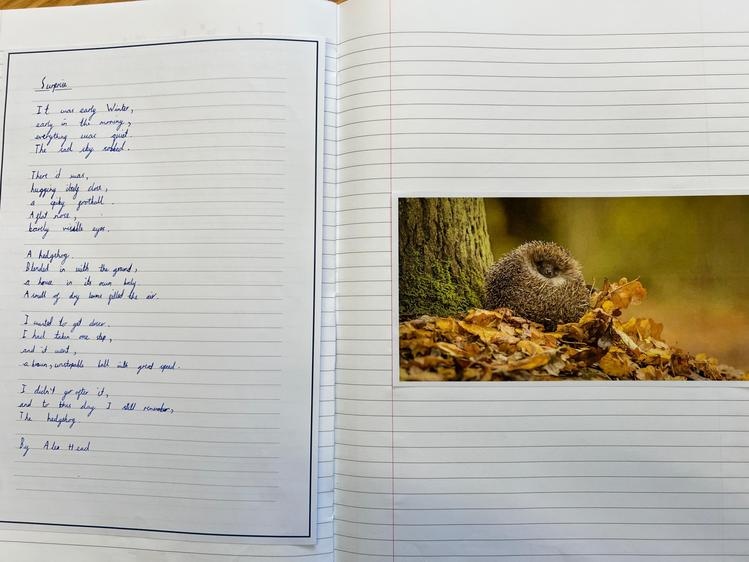 Surprise
It was early Winter,
early in the morning,
everything was quiet.
The red sky sobbed.
There it was,
hugging itself close,
a spiky football.
A flat nose,
barely visible eyes.
A hedgehog.
Blended in with the ground,
a house in its own body.
A smell of dry leaves filled the air.
I wanted to get closer.
I had taken one step,
and it went,
a brown, unstoppable ball with great speed.
I didn't go after it,
and to this day I still remember,
The hedgehog.
By Alex Head